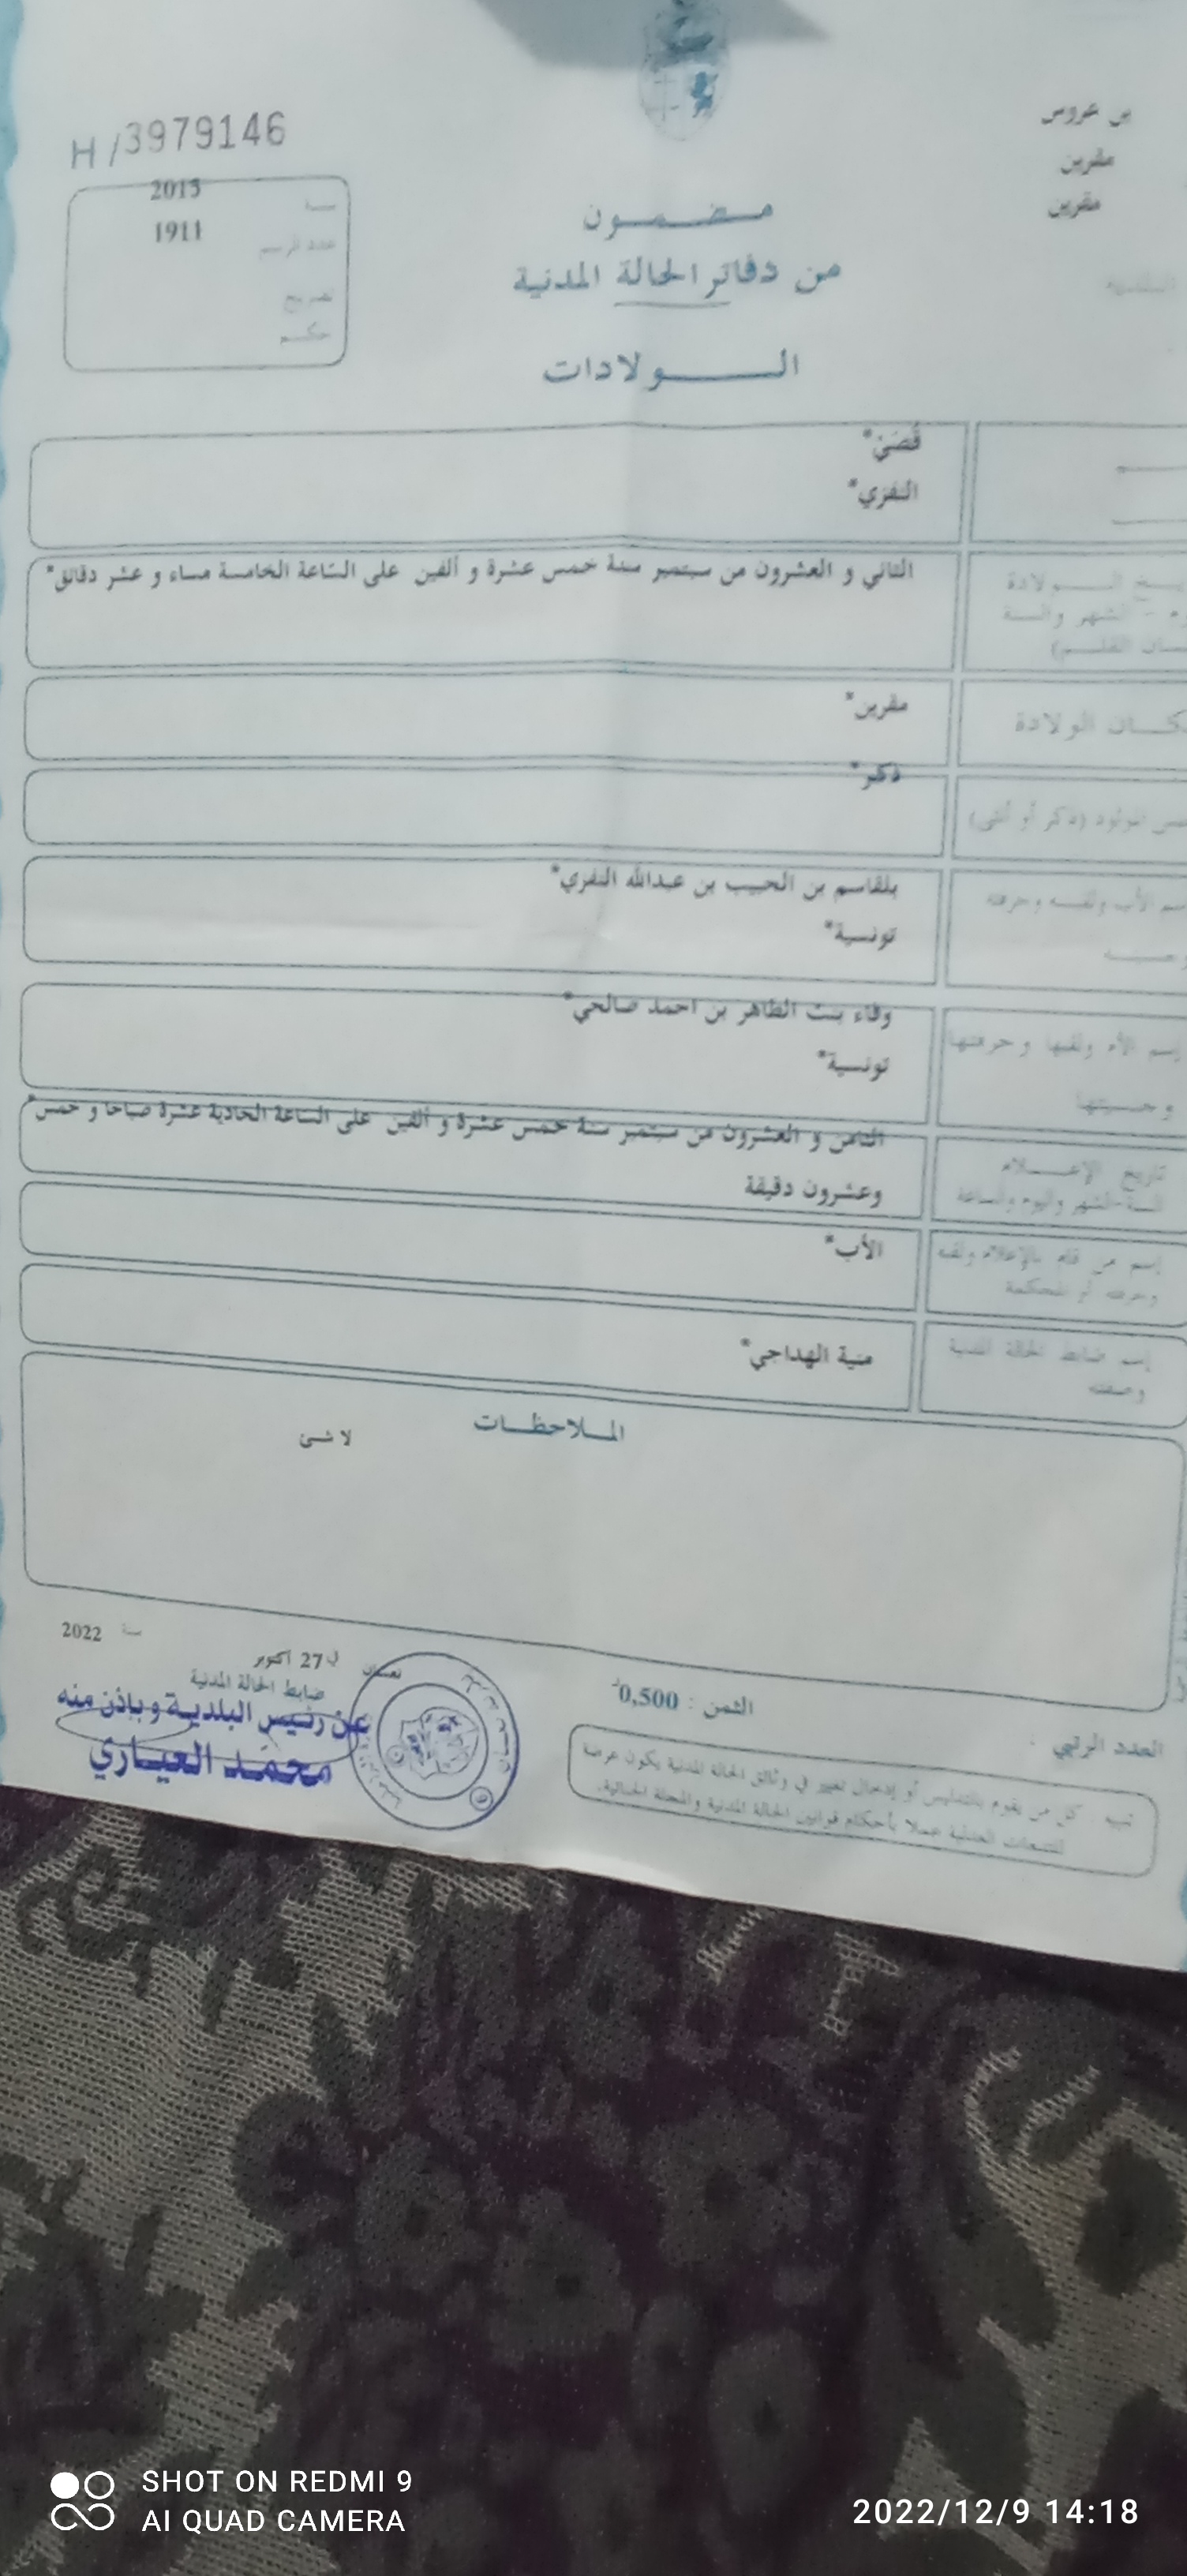 بن عروس
مقرين
مقرين
H/3979146
سنة 2015
عدد الرسم 1911
تصريح
حكم
مضمون
من دفاتر الحالة المدنية
الولادات
قُصَيْ*
النفزي*
الولادة
الشهر والسنة
القلم)
الثاني و العشرون من سبتمبر سنة خمس عشرة و ألفين على الساعة الخامسة مساء و عشر دقائق*
الولادة
مقرين*
المولود (ذكر أو أنثى)
ذكر*
الأب ولقبه وحرفته
بلقاسم بن الحبيب بن عبدالله النفزي*
تونسية*
إسم الأم ولقبها وحرفتها
وجنسيتها
وفاء بنت الطاهر بن احمد صالحي*
تونسية*
تاريخ الإعلام
السنة-الشهر واليوم والساعة
الثامن و العشرون من سبتمبر سنة خمس عشرة و ألفين على الساعة الحادية عشرة صباحا و خمس*
وعشرون دقيقة
إسم من قام بالإعلام ولقبه
وحرفته أو المحكمة
الأب*
إسم ضابط الحالة المدنية
وصفته
منية الهداجي*
الملاحظات
لا شئ
في 27 أكتوبر سنة 2022
ضابط الحالة المدنية
عن رئيس البلدية وباذن منه
محمد العياري
الثمن : 0,500د
العدد الرتبي :
تنبيه : كل من يقوم بالتدليس أو إدخال تغيير في وثائق الحالة المدنية يكون عرضة
للتتبعات العدلية عملا بأحكام قوانين الحالة المدنية والمجلة الجنائية.
SHOT ON REDMI 9
AI QUAD CAMERA
2022/12/9 14:18